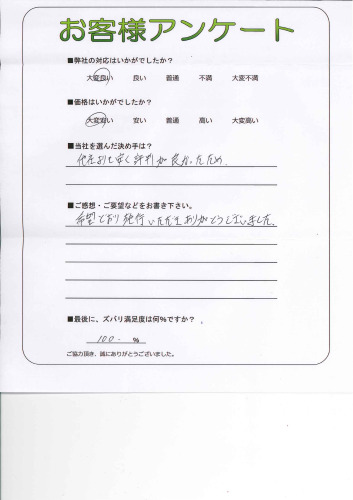 お客様アンケート
■弊社の対応はいかがでしたか？
大変良い 良い 普通 不満 大変不満
■価格はいかがでしたか？
大変安い 安い 普通 高い 大変高い
■当社を選んだ決め手は？
他社よりも安く評判が良かったため.
■ご感想・ご要望などをお書き下さい。
希望どおり施行いただきありがとうございました.
■最後に、ズバリ満足度は何％ですか？
100. %
ご協力頂き、誠にありがとうございました。